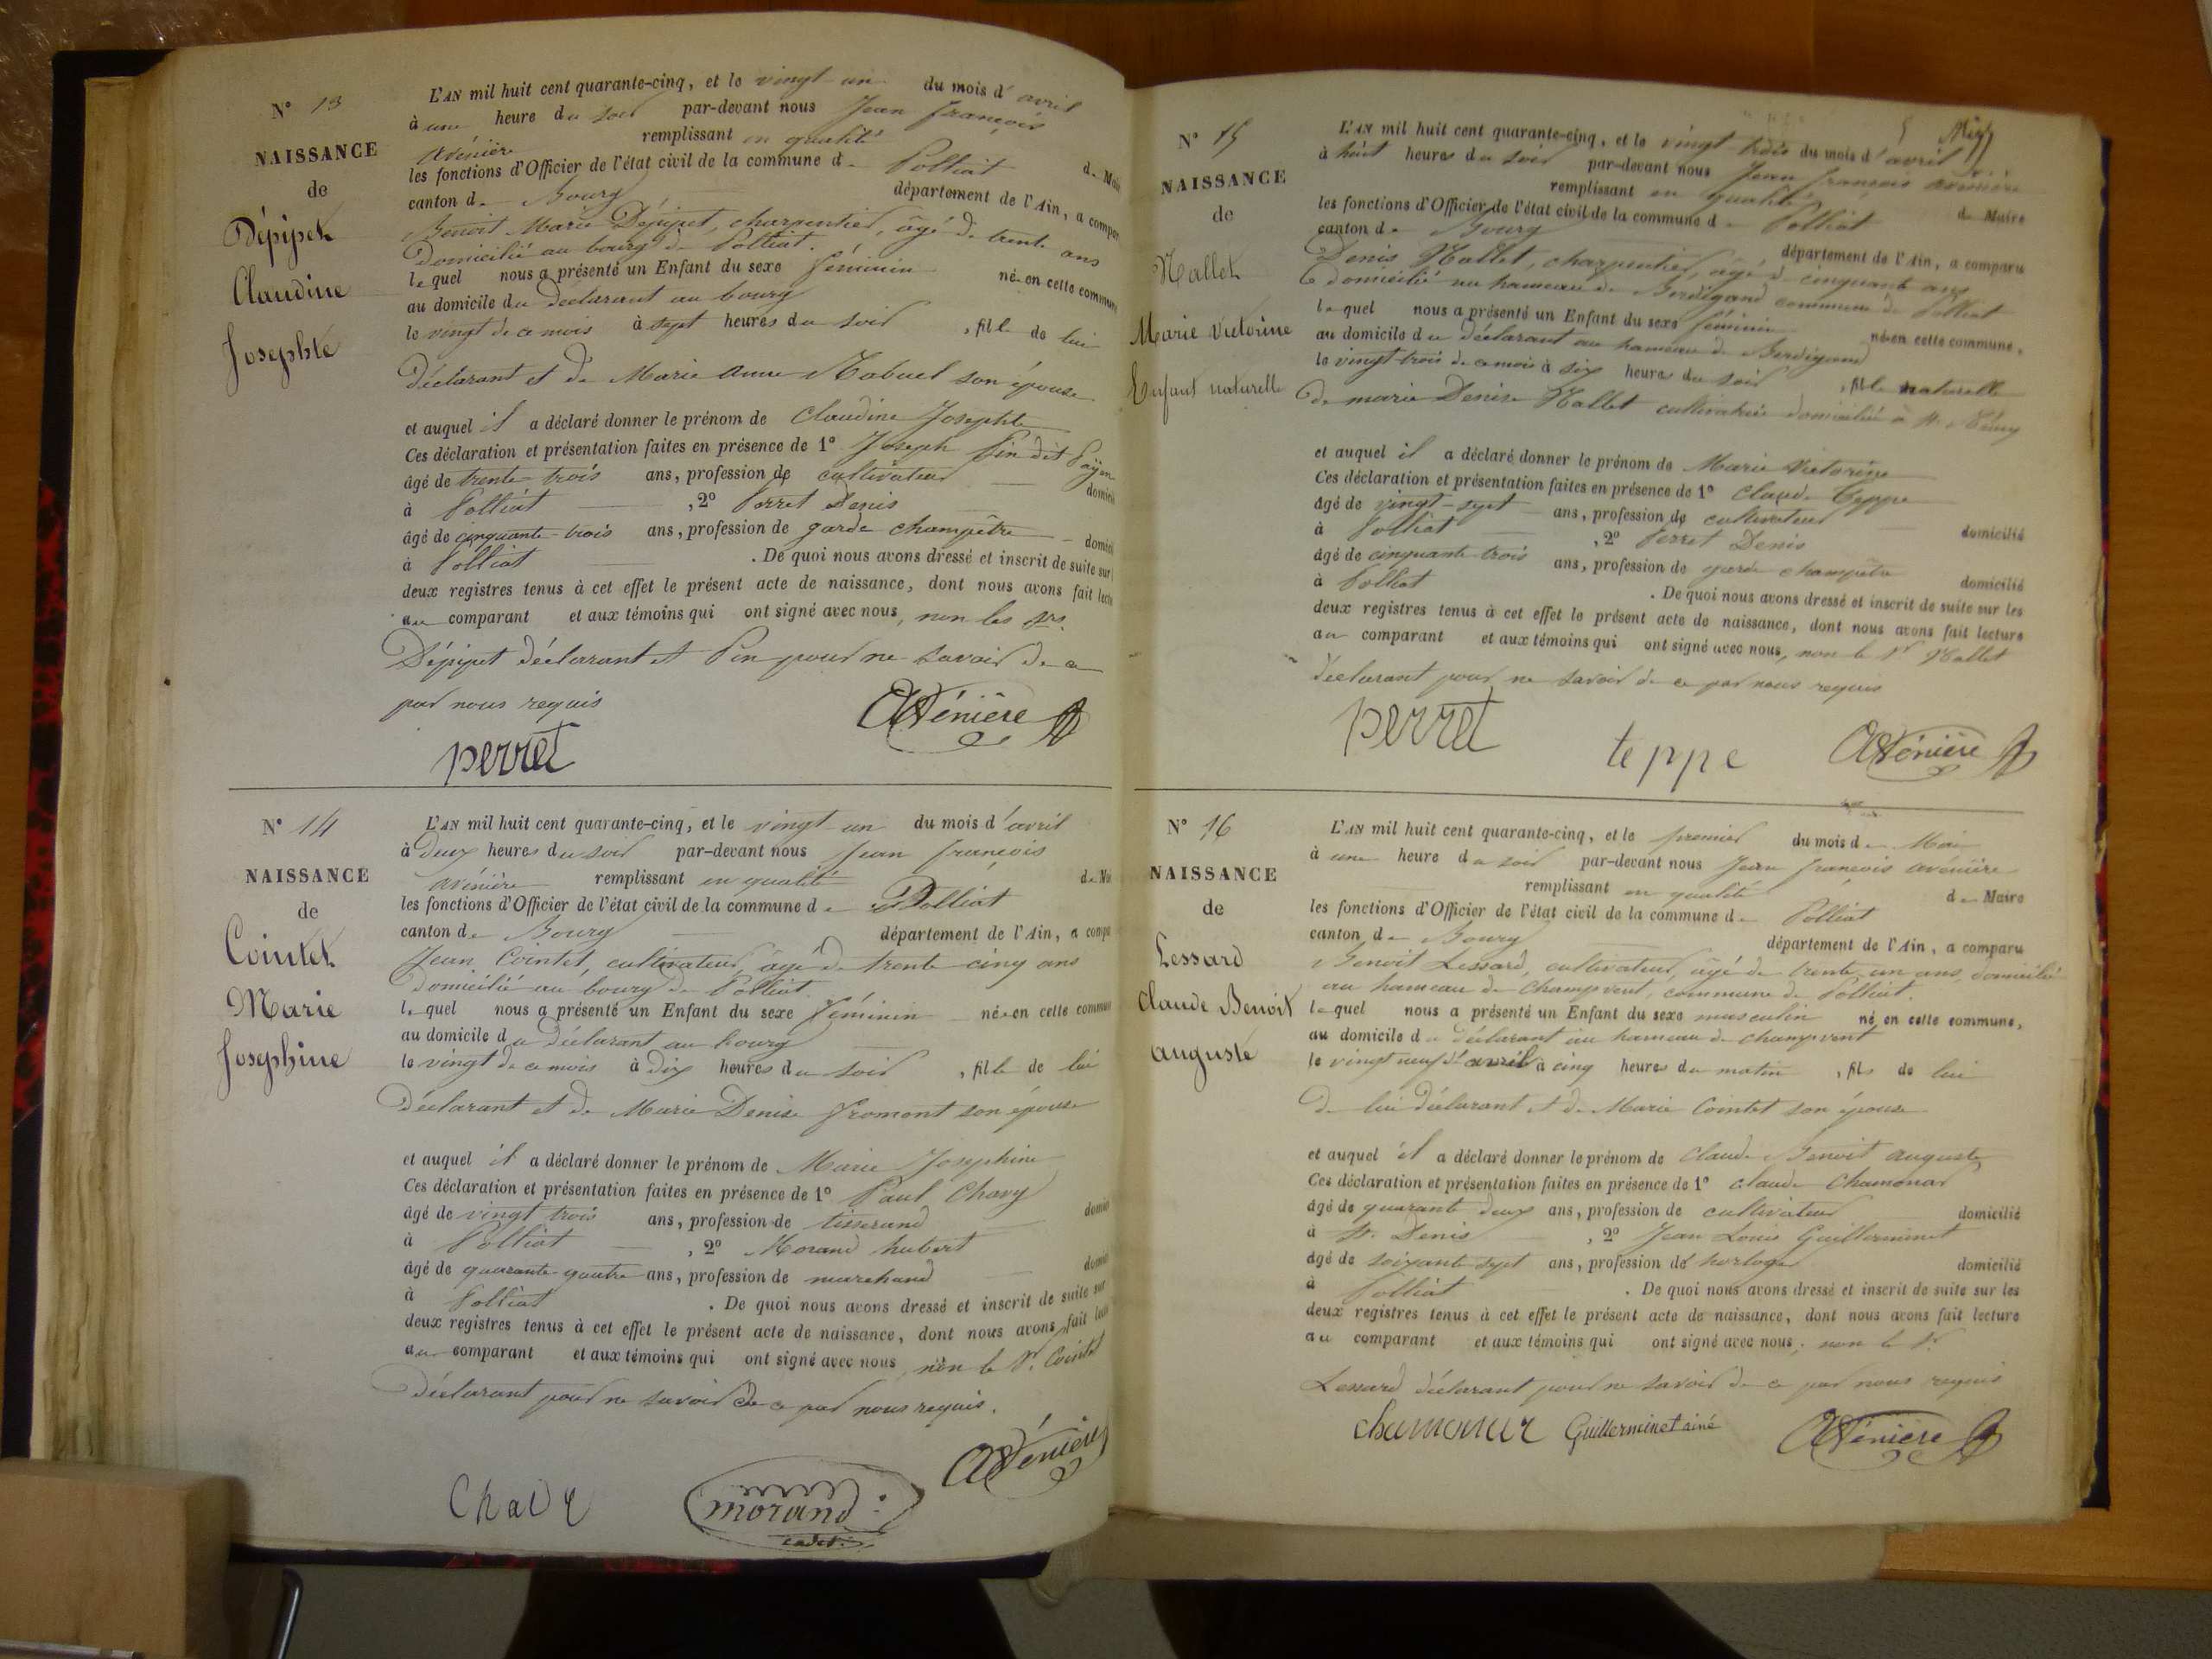 N° 13
NAISSANCE
de
Dépipet
Claudine
Josephte
L'AN mil huit cent quarante-cinq, et le vingt un du mois d'avril
à une heure du soir par-devant nous Jean françois
avénière remplissant en qualité de Mai
les fonctions d'Officier de l'état civil de la commune de Polliat
canton de Bourg département de l'Ain, a compar
Benoit Marie Dépipet, charpentier, âgé de trente ans
Domicilié au bourg de Polliat.
lequel nous a présenté un Enfant du sexe féminin née en cette commune
au domicile du déclarant au bourg
le vingt de ce mois à sept heures du soir , fille de lui
déclarant et de Marie anne son épouse
et auquel il a déclaré donner le prénom de Claudine Josephte
Ces déclaration et présentation faites en présence de 1° Joseph Pin dit
âgé de trente trois ans, profession de cultivateur domicil
à Polliat , 2° Perret Denis
âgé de cinquante-trois ans, profession de garde champêtre domici
à Polliat . De quoi nous avons dressé et inscrit de suite sur
deux registres tenus à cet effet le présent acte de naissance, dont nous avons fait lectu
au comparant et aux témoins qui ont signé avec nous, non les Srs.
Dépipet déclarant et Pin pour ne savoir de ce
par nous requis
AVénière
perret
N° 14
NAISSANCE
de
Cointet
Marie
Josephine
L'AN mil huit cent quarante-cinq, et le vingt un du mois d'avril
à Deux heures du soir par-devant nous Jean françois
avénière remplissant en qualité de Mai
les fonctions d'Officier de l'état civil de la commune de Polliat
canton de Bourg département de l'Ain, a compa
Jean Cointet, cultivateur, âgé de trente cinq ans
Domicilié au bourg de Polliat.
lequel nous a présenté un Enfant du sexe féminin née en cette commun
au domicile du déclarant au bourg
le vingt de ce mois à dix heures du soir , fille de lui
Déclarant et de Marie Denise fromont son épouse
et auquel il a déclaré donner le prénom de Marie Josephine
Ces déclaration et présentation faites en présence de 1° Paul Chavy
âgé de vingt trois ans, profession de tisserand domici
à Polliat , 2° Morand hubert
âgé de quarante-quatre ans, profession de marchand domici
à Polliat . De quoi nous avons dressé et inscrit de suite sur
deux registres tenus à cet effet le présent acte de naissance, dont nous avons fait lectu
au comparant et aux témoins qui ont signé avec nous, non le Sr. Cointet
déclarant pour ne savoir de ce par nous requis.
AVénière
Chavy
morand
cadet
N° 15
NAISSANCE
de
Nallet
Marie Victorine
Enfant naturelle
L'AN mil huit cent quarante-cinq, et le vingt trois du mois d'avril
à huit heures du soir par-devant nous Jean françois avénière
remplissant en qualité de Maire
les fonctions d'Officier de l'état civil de la commune de Polliat
canton de Bourg département de l'Ain, a comparu
Denis Nallet, charpentier, âgé de cinquante ans
Domicilié au hameau de commune de Polliat
lequel nous a présenté un Enfant du sexe féminin née en cette commune,
au domicile du déclarant au hameau de
le vingt-trois de ce mois à six heures du soir , fille naturelle
de marie Denise Nallet cultivatrice domiciliée à
et auquel il a déclaré donner le prénom de Marie Victorine
Ces déclaration et présentation faites en présence de 1° Claude Teppe
âgé de vingt-sept ans, profession de cultivateur domicilié
à Polliat , 2° Perret Denis
âgé de cinquante trois ans, profession de garde champêtre domicilié
à Polliat . De quoi nous avons dressé et inscrit de suite sur les
deux registres tenus à cet effet le présent acte de naissance, dont nous avons fait lecture
au comparant et aux témoins qui ont signé avec nous, non le Sr Nallet
déclarant pour ne savoir de ce par nous requis
perret teppe AVénière
N° 16
NAISSANCE
de
Lessard
Claude Benoit
auguste
L'AN mil huit cent quarante-cinq, et le premier du mois de Mai
à une heure du soir par-devant nous Jean françois avénière
remplissant en qualité de Maire
les fonctions d'Officier de l'état civil de la commune de Polliat
canton de Bourg département de l'Ain, a comparu
Benoit Lessard, cultivateur, âgé de trente un ans, domicilié
au hameau de Champvent, commune de Polliat.
lequel nous a présenté un Enfant du sexe masculin né en cette commune,
au domicile du déclarant au hameau de champvent
le vingt neuf d'avril à cinq heures du matin , fils de lui
de lui déclarant et de Marie Cointet son épouse
et auquel il a déclaré donner le prénom de Claude Benoit auguste
Ces déclaration et présentation faites en présence de 1° Claude Chamonar
âgé de quarante deux ans, profession de cultivateur domicilié
à St. Denis , 2° Jean Louis Guillerminet
âgé de soixante sept ans, profession de horloger domicilié
à Polliat . De quoi nous avons dressé et inscrit de suite sur les
deux registres tenus à cet effet le présent acte de naissance, dont nous avons fait lecture
au comparant et aux témoins qui ont signé avec nous, non le Sr.
Lessard déclarant pour ne savoir de ce par nous requis
chamonar Guillerminet ainé AVénière